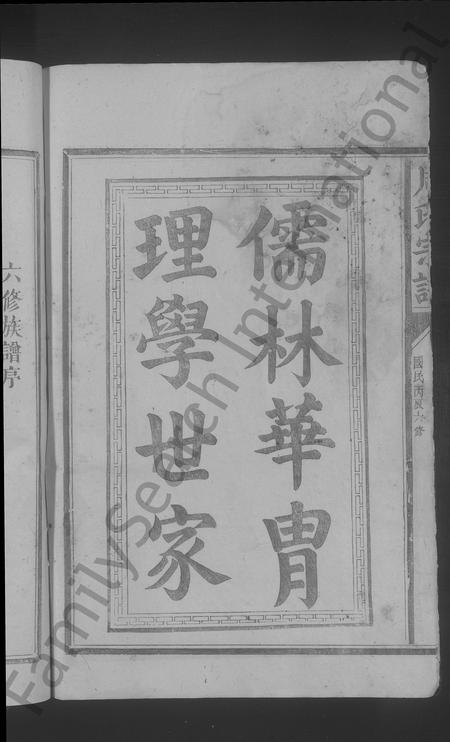 周氏宗譜
國民丙戌六修
儒林華胄
理學世家
六修族譜序
FamilySearch International